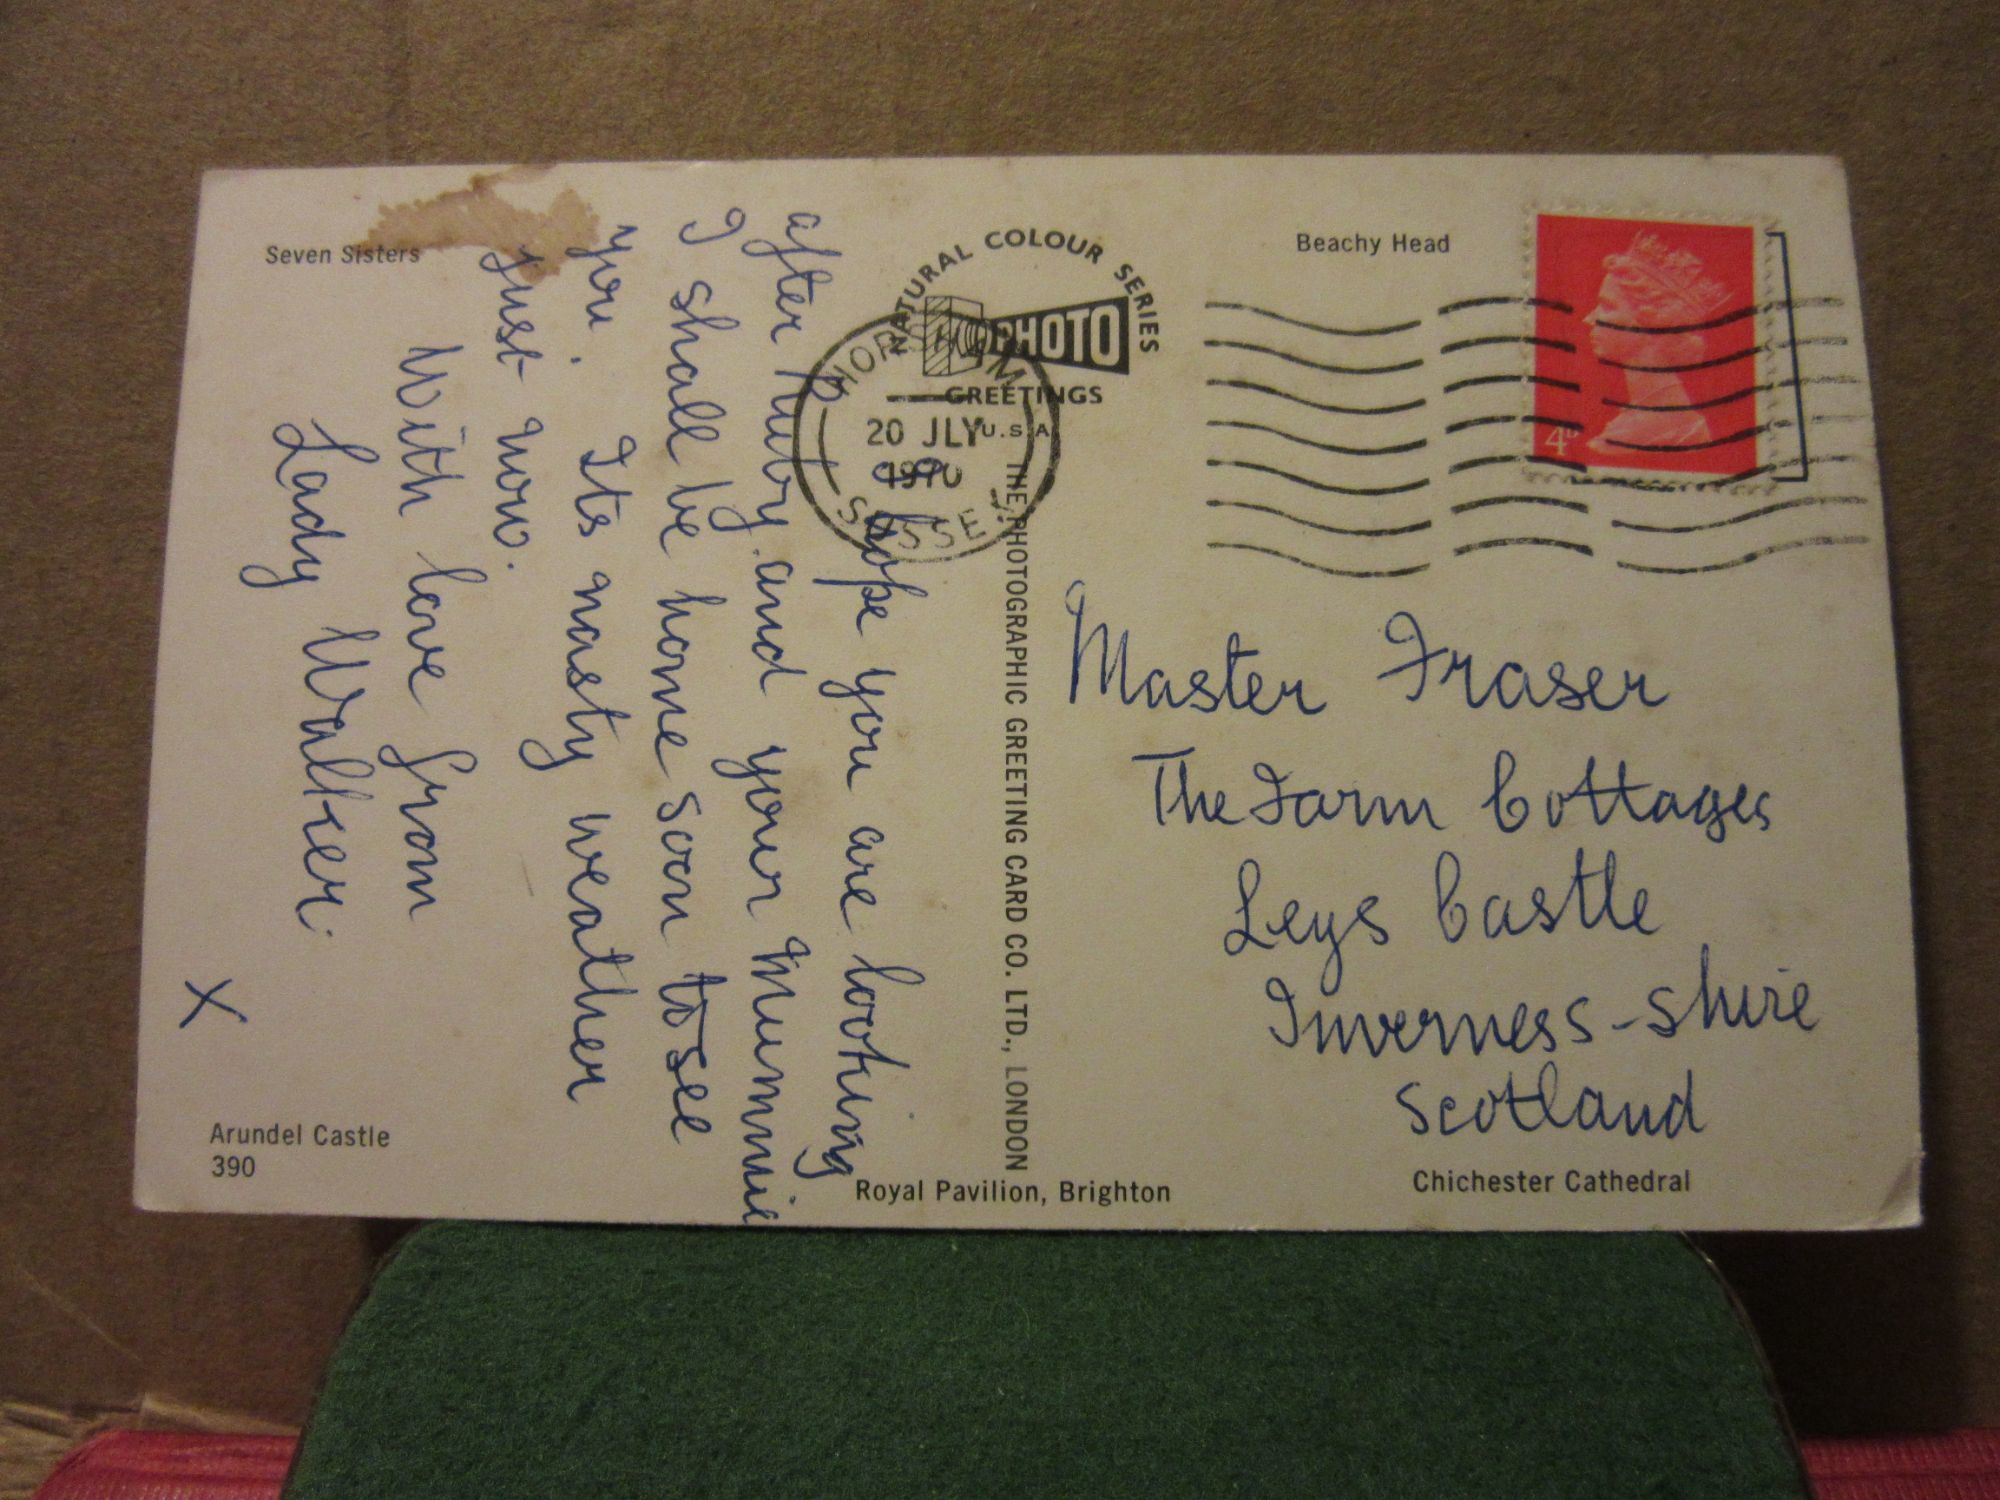 Seven Sisters
Beachy Head
NATURAL COLOUR SERIES
PHOTO
GREETINGS
U.S.A
HORSHAM
20 JLY
1970
SUSSEX
4D
I hope you are looking
after Ruby and your Mummie
I shall be home soon to see
you. Its nasty weather
just now.
With love from
Lady Walker.
X
THE PHOTOGRAPHIC GREETING CARD CO. LTD., LONDON
Master Fraser
The Farm Cottages
Leys Castle
Inverness-shire
Scotland
Arundel Castle
390
Royal Pavilion, Brighton
Chichester Cathedral